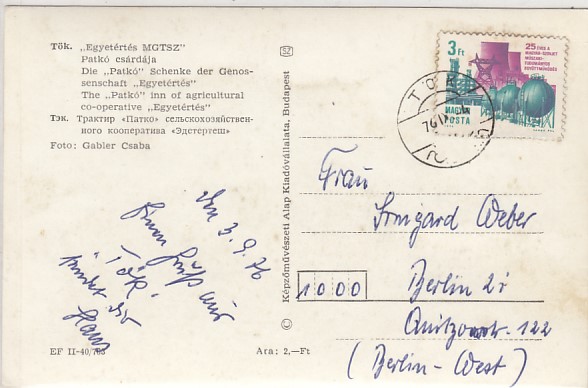 Tök. „Egyetértés MGTSZ”
Patkó csárdája
Die „Patkó” Schenke der Genos-
senschaft „Egyetértés”
The „Patkó” inn of agricultural
co-operative „Egyetértés”
Тэк. Трактир «Патко» сельскохозяйствен-
ного кооператива «Эдетертеш»
Foto: Gabler Csaba
Den 3.9.76
Einen Gruß aus
Tök.
sendet dir
Hans
EF II-40/765
Ára: 2,—Ft
© Képzőművészeti Alap Kiadóvállalata, Budapest
SZ
3 Ft
25 ÉVES A
MAGYAR-SZOVJET
MŰSZAKI-
TUDOMÁNYOS
EGYÜTTMŰKÖDÉS
MAGYAR
POSTA
TÖK
Frau
Irmgard Weber
1000
Berlin 21
Quitzowstr. 122
(Berlin-West)